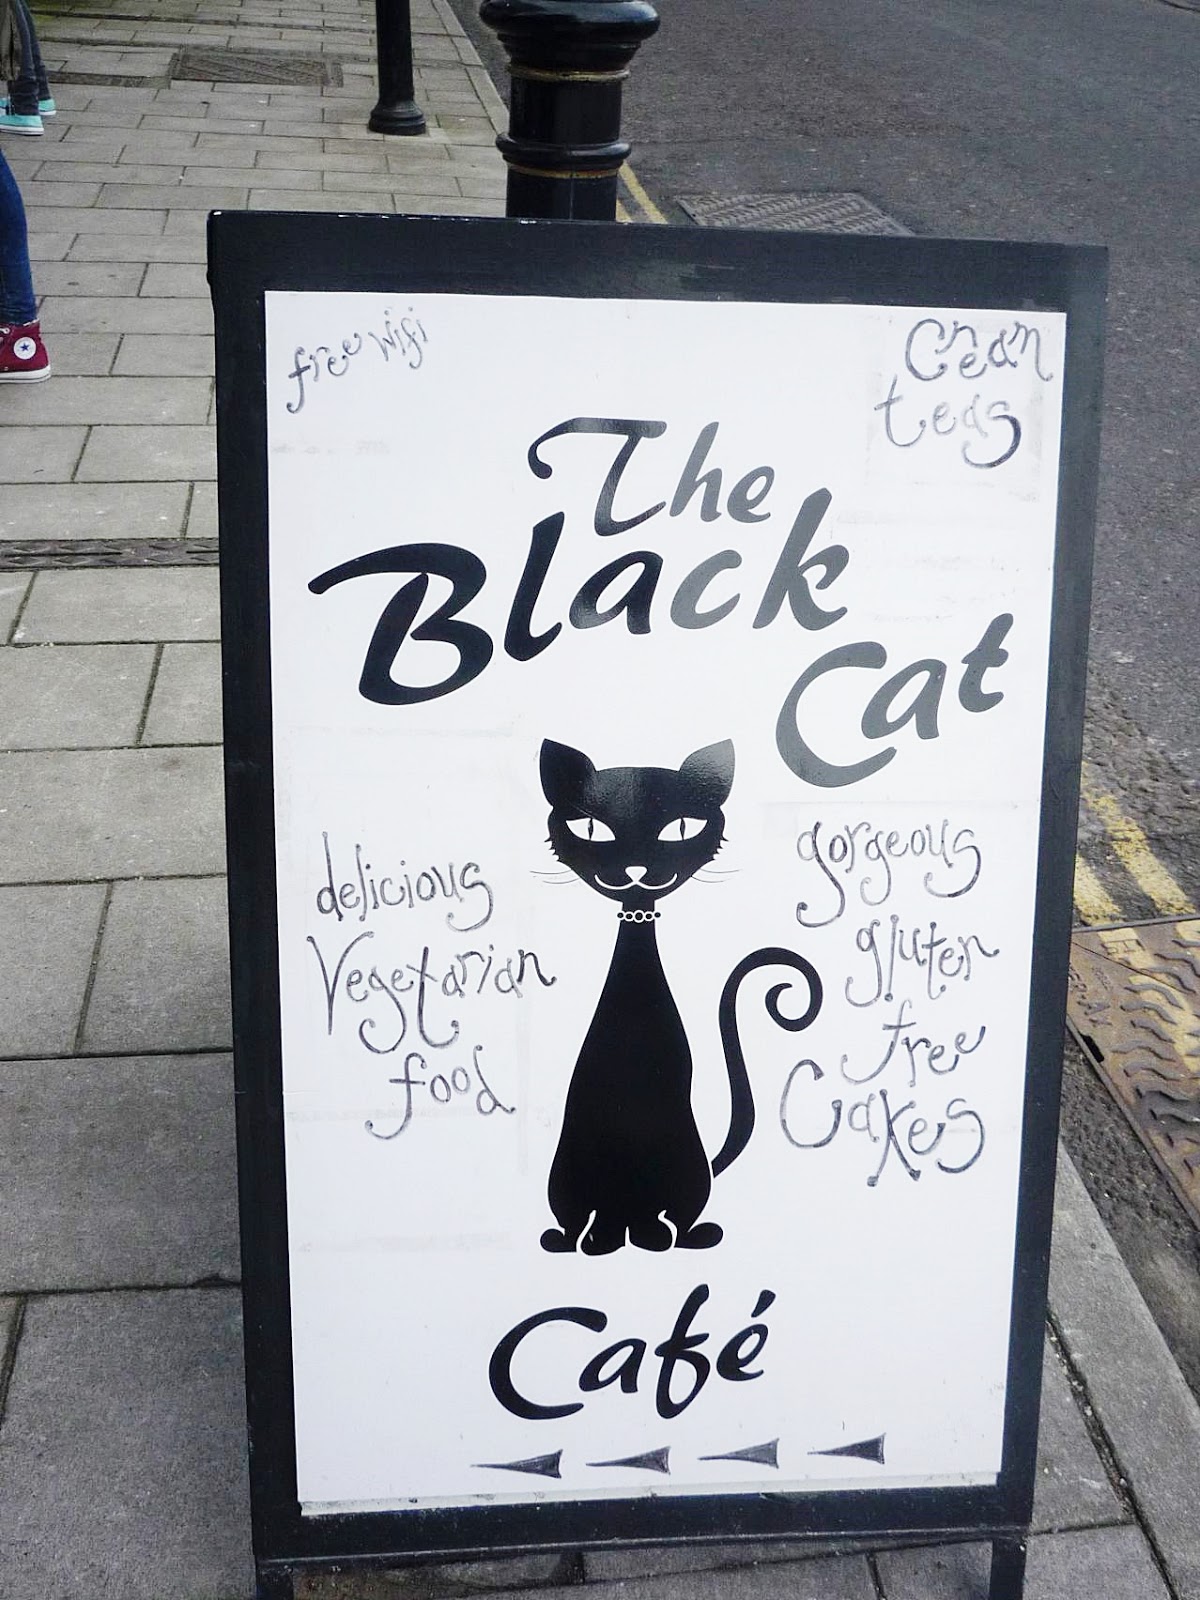 free wifi
Cream
teas
The
Black
Cat
delicious
Vegetarian
food
gorgeous
gluten
free
Cakes
Café